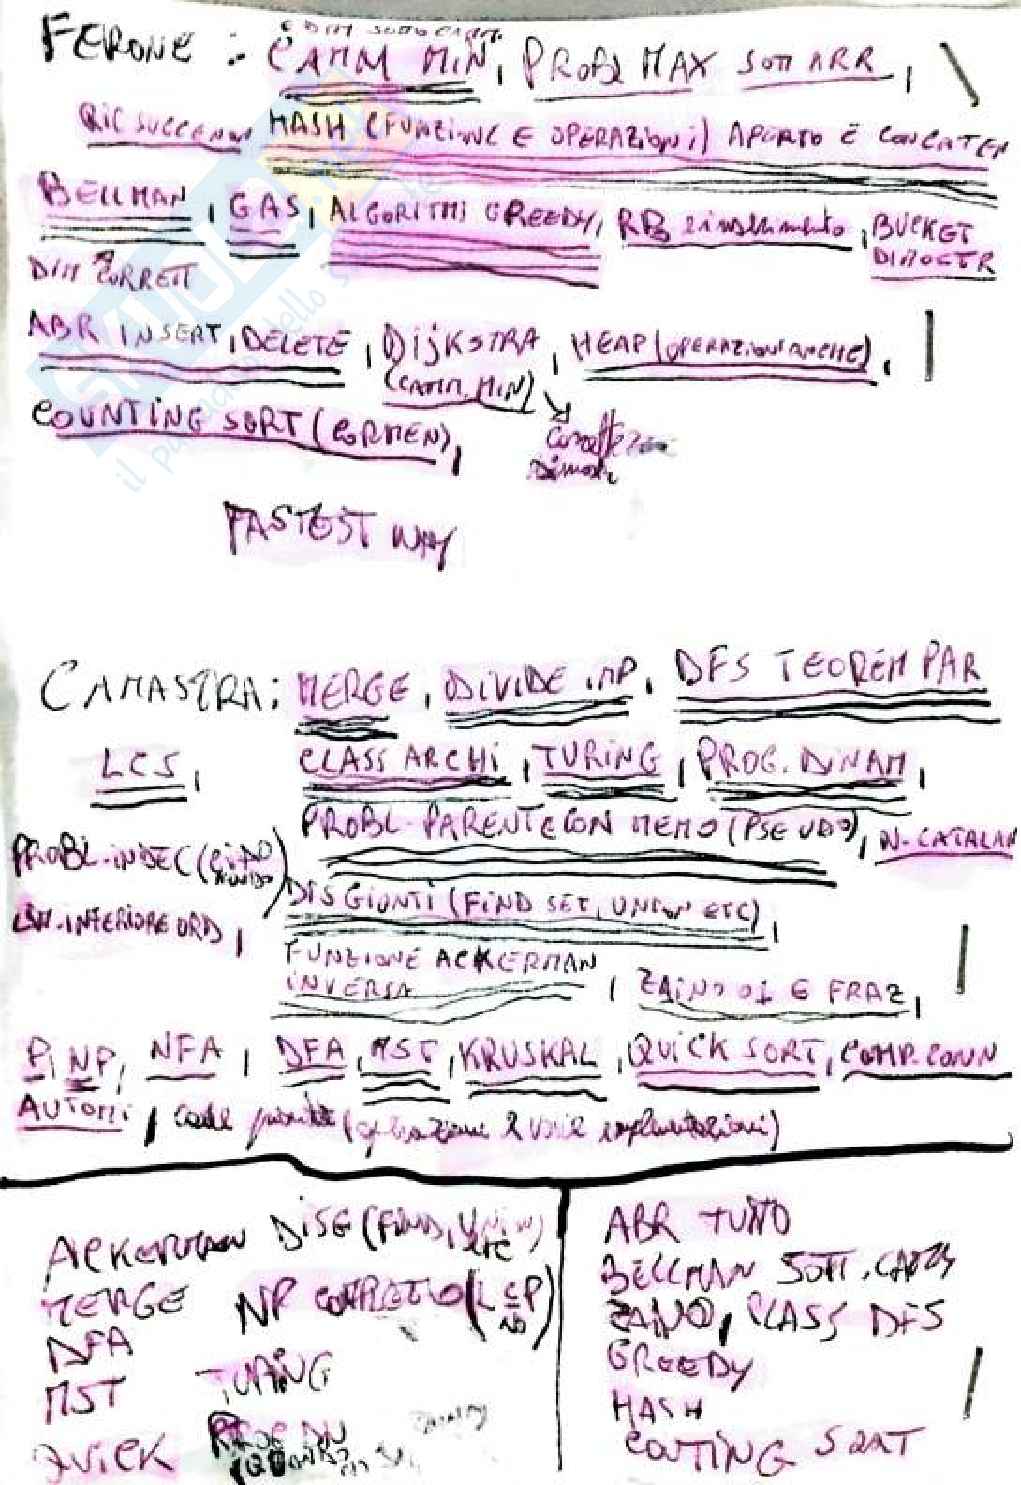 DIM SOTTOCAMM
FERONE : CAMM MIN, PROBL MAX SOTT ARR,
RIC SUCCESSO HASH (FUNZIONE E OPERAZIONI) APERTO E CONCATEN
BELLMAN, GAS, ALGORITMI GREEDY, RB inserimento, BUCKET
DIM CORRETT DIMOSTR
ABR INSERT, DELETE, DIJKSTRA, HEAP (OPERAZIONI ANCHE),
(CAMM. MIN)
COUNTING SORT (CORMEN), Correttezza
Dimostr
FASTEST WAY
CAMASTRA: MERGE, DIVIDE IMP, DFS TEOREM PAR
LCS, CLASS ARCHI, TURING, PROG. DINAM,
PROBL. PARENTE CON MEMO (PSEUDO), N. CATALAN
PROBL. INDEC (CIAO MONDO)
DISGIUNTI (FIND SET, UNION ETC),
LIM. INFERIORE ORD,
FUNZIONE ACKERMAN
INVERSA, ZAINO 01 E FRAZ,
P, NP, NFA, DFA, MST, KRUSKAL, QUICK SORT, COMP. CONN
AUTOMI, code priorità (operazioni e varie implementazioni)
ACKERMAN DISG (FIND, UNION ETC)
MERGE NP COMPLETO (
DFA
MST TURING
QUICK PROG DIN
ABR TUTTO
BELLMAN SOTT. CAMM
ZAINO, CLASS DFS
GREEDY
HASH
COUTING SORT
il dello